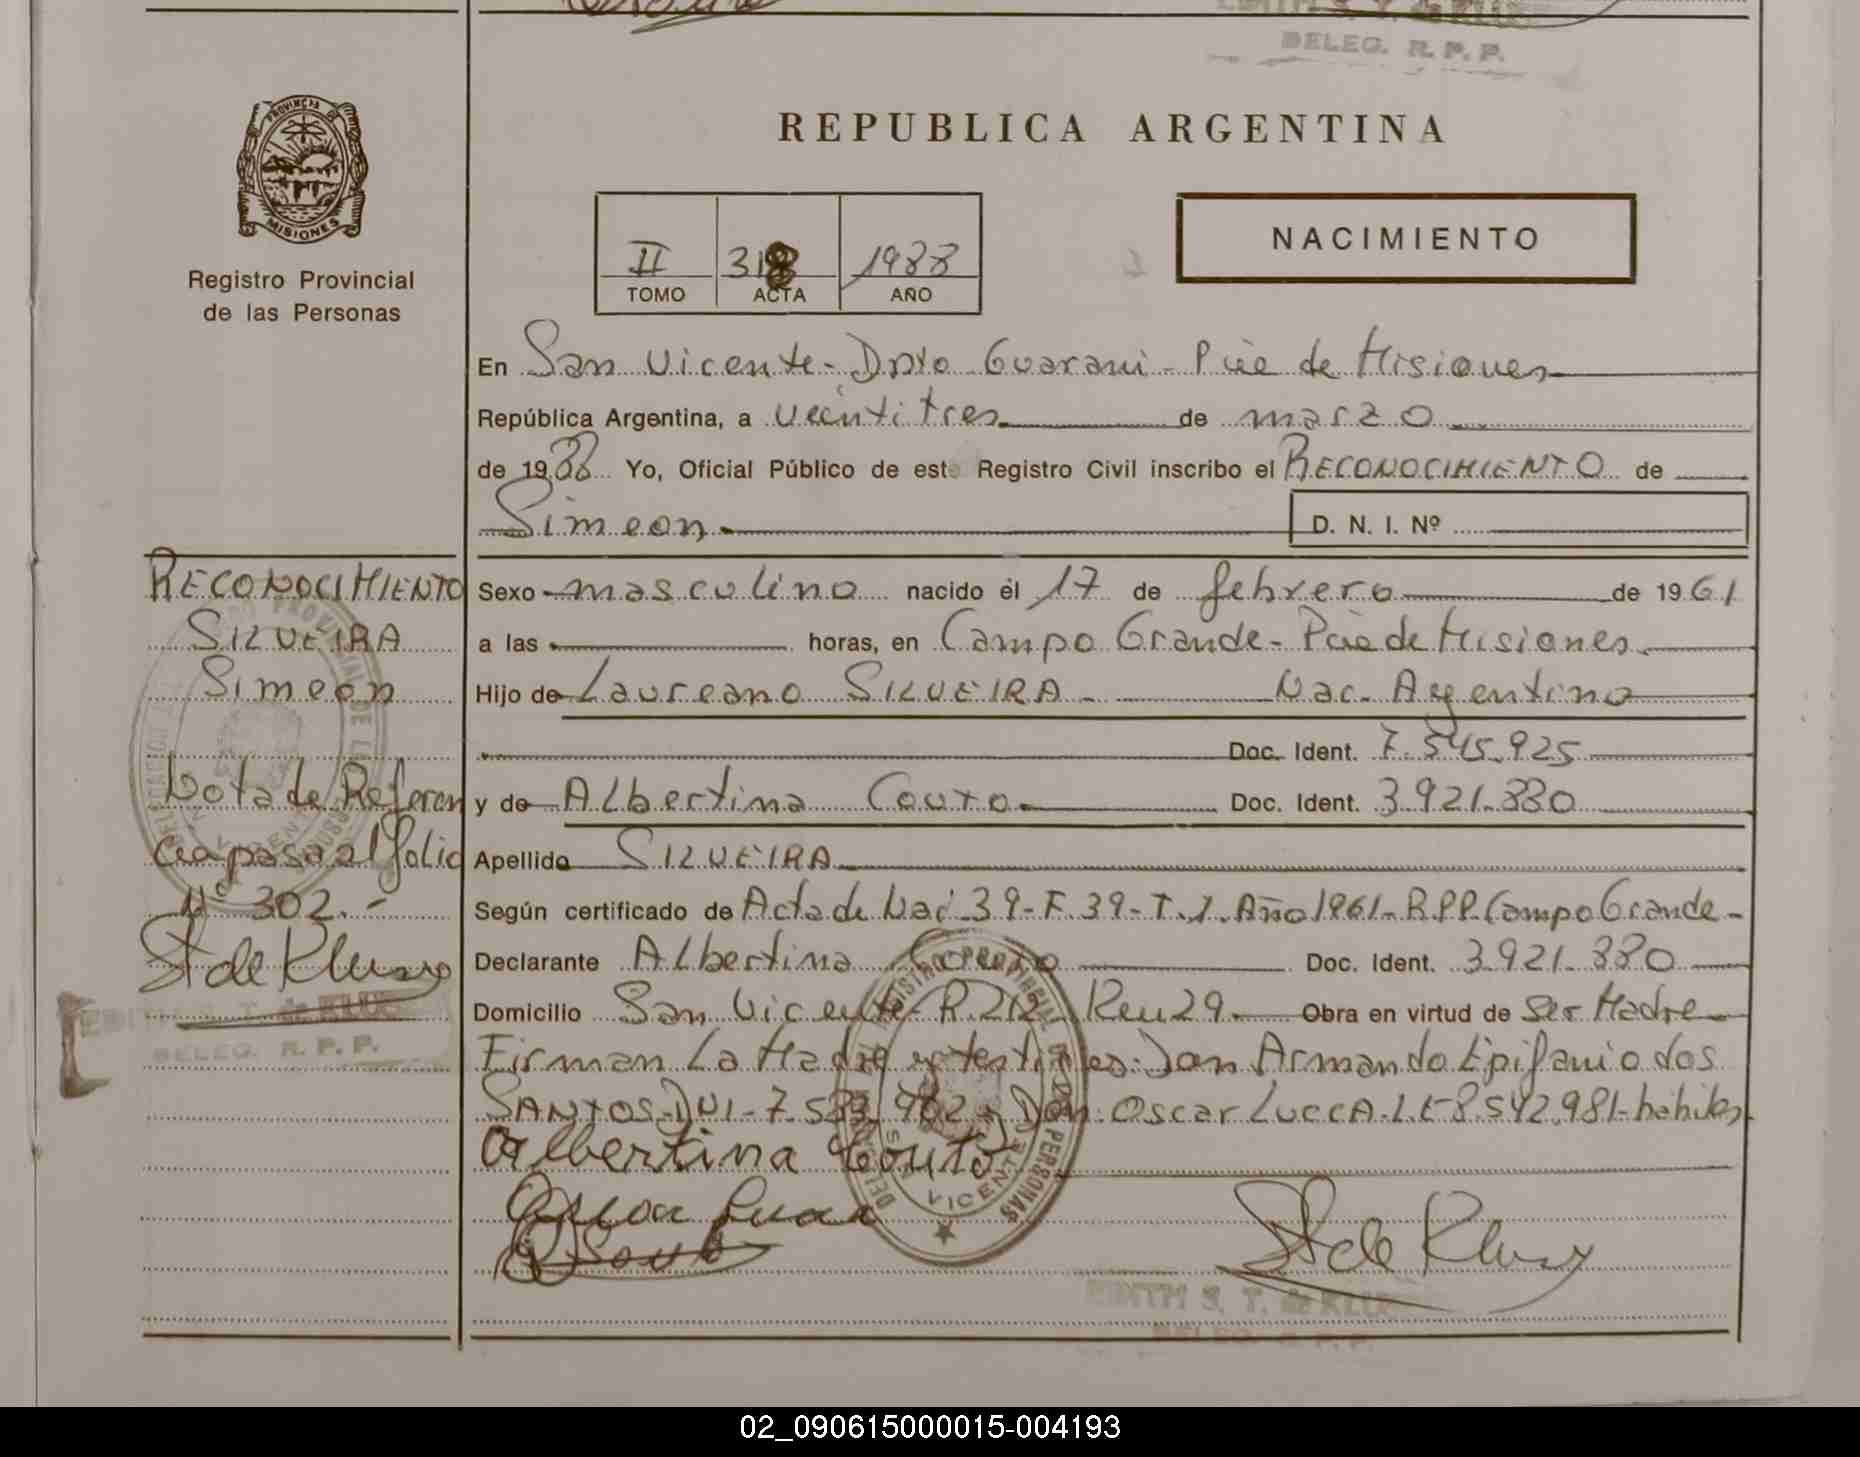 DELEG. R. P. P.
PROVINCIA
MISIONES
Registro Provincial
de las Personas
REPUBLICA ARGENTINA
NACIMIENTO
II 318 1988
TOMO ACTA AÑO
En San Vicente - Dpto Guarani - Pcia de Misiones
República Argentina, a veintitres de marzo
de 1988 Yo, Oficial Público de este Registro Civil inscribo el RECONOCIMIENTO de
Simeon D. N. I. Nº
RECONOCIMIENTO
SILVEIRA
Simeon
Nota de Referen
cia pasa al folio
Nº 302.-
St de Klusy
EDITH S. T. de KLUS
DELEG. R. P. P.
Sexo masculino nacido el 17 de febrero de 1961
a las horas, en Campo Grande - Pcia de Misiones.
Hijo de Laureano SILVEIRA - Nac. Argentino
Doc. Ident. 7.545.925
y de Albertina Couto Doc. Ident. 3.921.880
Apellido SILVEIRA
Según certificado de Acta de Nac. 39-F.39-T.1. Año 1961- R.P.P. Campo Grande -
Declarante Albertina Couto Doc. Ident. 3.921.880
Domicilio San Vicente R 212 Km 29. Obra en virtud de Ser Madre
Firman La Madre y testigos: Don Armando Epifanio dos
SANTOS-DNI-7.533.962 y Don: Oscar LUCCA-L.E 8.542.981-hábiles
Albertina Couto
VICENTE
St de Klusy
EDITH S. T. de KLUS
DELEG. R. P. P.
02_090615000015-004193